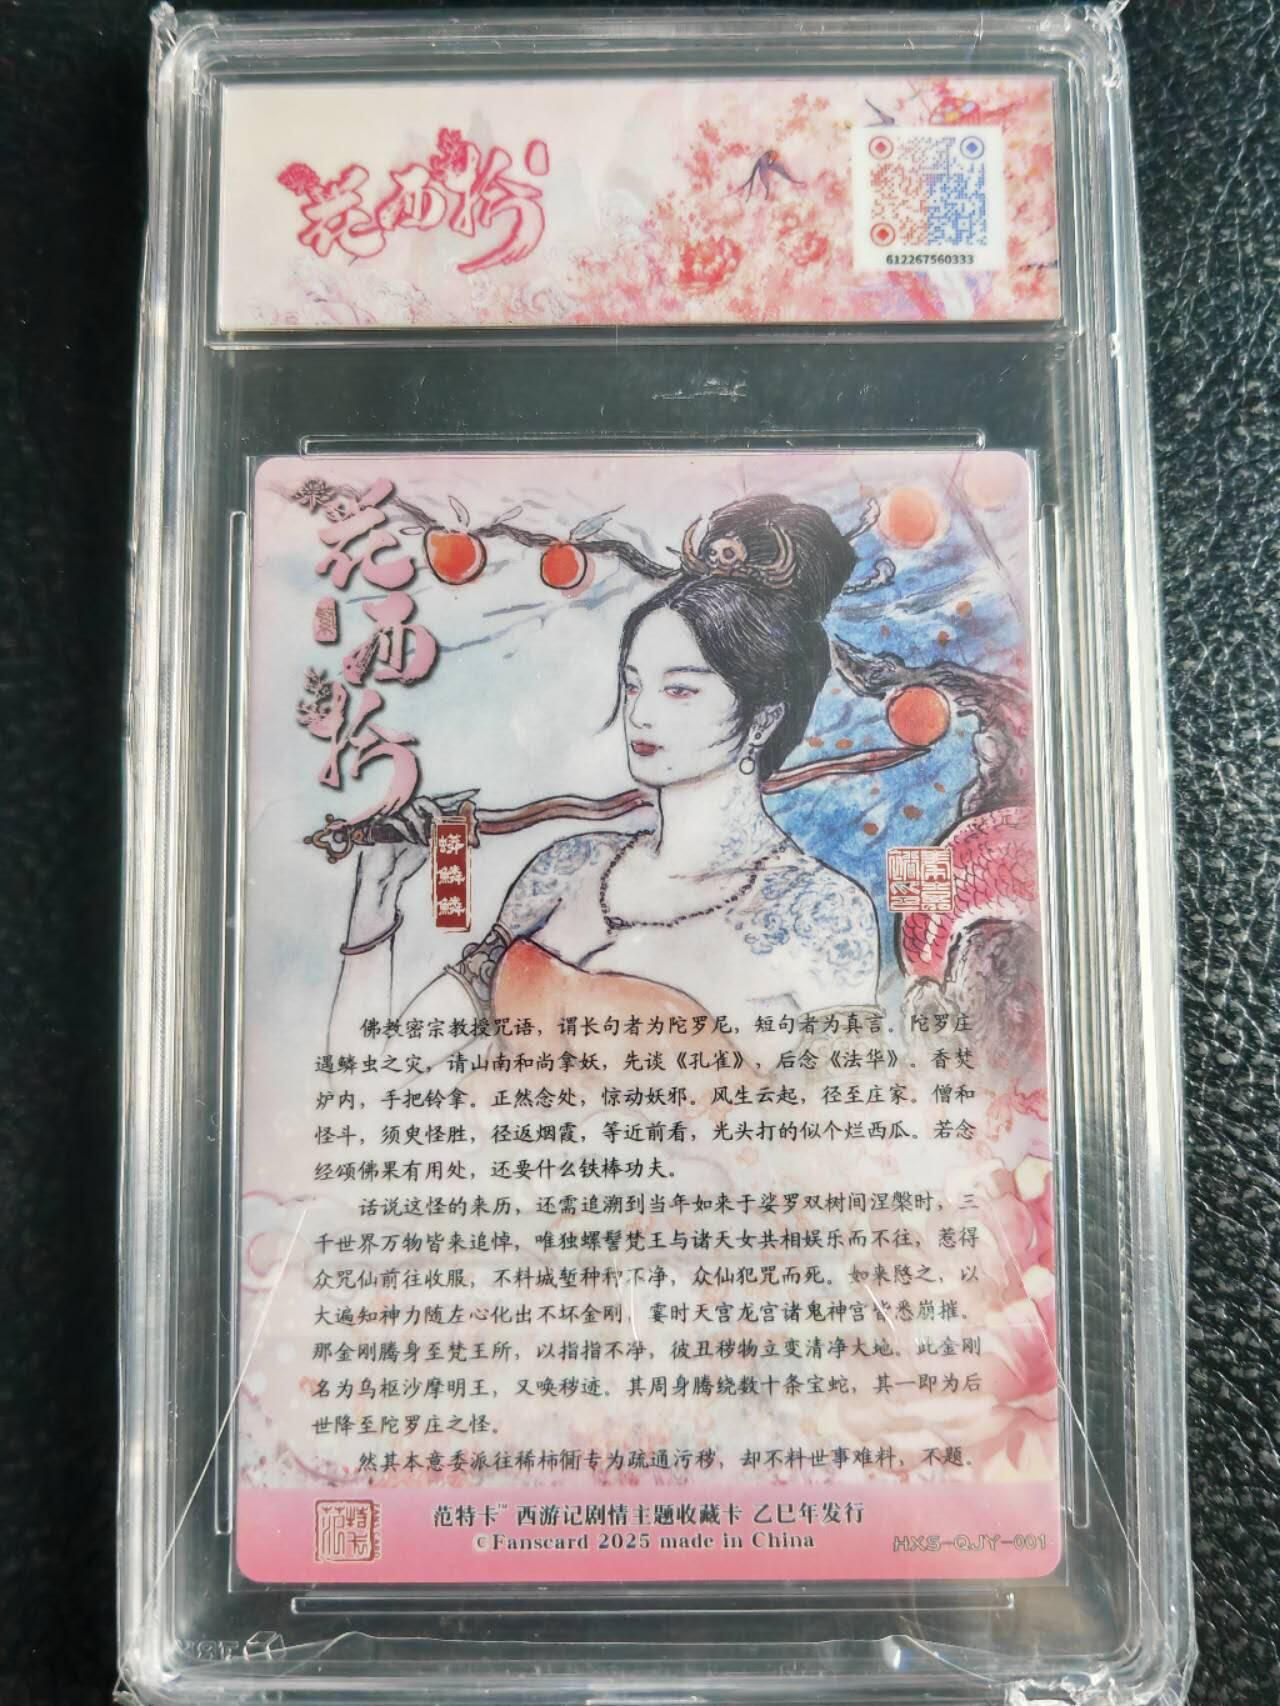 花西拾
612267560333
花西拾
蟒鳞鳞
佛教密宗教授咒语，谓长句者为陀罗尼，短句者为真言。陀罗庄
遇鳞虫之灾，请山南和尚拿妖，先谈《孔雀》，后念《法华》。香焚
炉内，手把铃拿。正然念处，惊动妖邪。风生云起，径至庄家。僧和
怪斗，须臾怪胜，径返烟霞，等近前看，光头打的似个烂西瓜。若念
经颂佛果有用处，还要什么铁棒功夫。
话说这怪的来历，还需追溯到当年如来于娑罗双树间涅槃时，三
千世界万物皆来追悼，唯独螺髻梵王与诸天女共相娱乐而不往，惹得
众咒仙前往收服，不料城堑种种不净，众仙犯咒而死。如来愍之，以
大遍知神力随左心化出不坏金刚，霎时天宫龙宫诸鬼神宫皆悉崩摧。
那金刚腾身至梵王所，以指指不净，彼丑秽物立变清净大地。此金刚
名为乌枢沙摩明王，又唤秽迹。其周身腾绕数十条宝蛇，其一即为后
世降至陀罗庄之怪。
然其本意委派往稀柿衕专为疏通污秽，却不料世事难料，不题。
范特卡™ 西游记剧情主题收藏卡 乙巳年发行
©Fanscard 2025 made in China
HXS-QJY-001